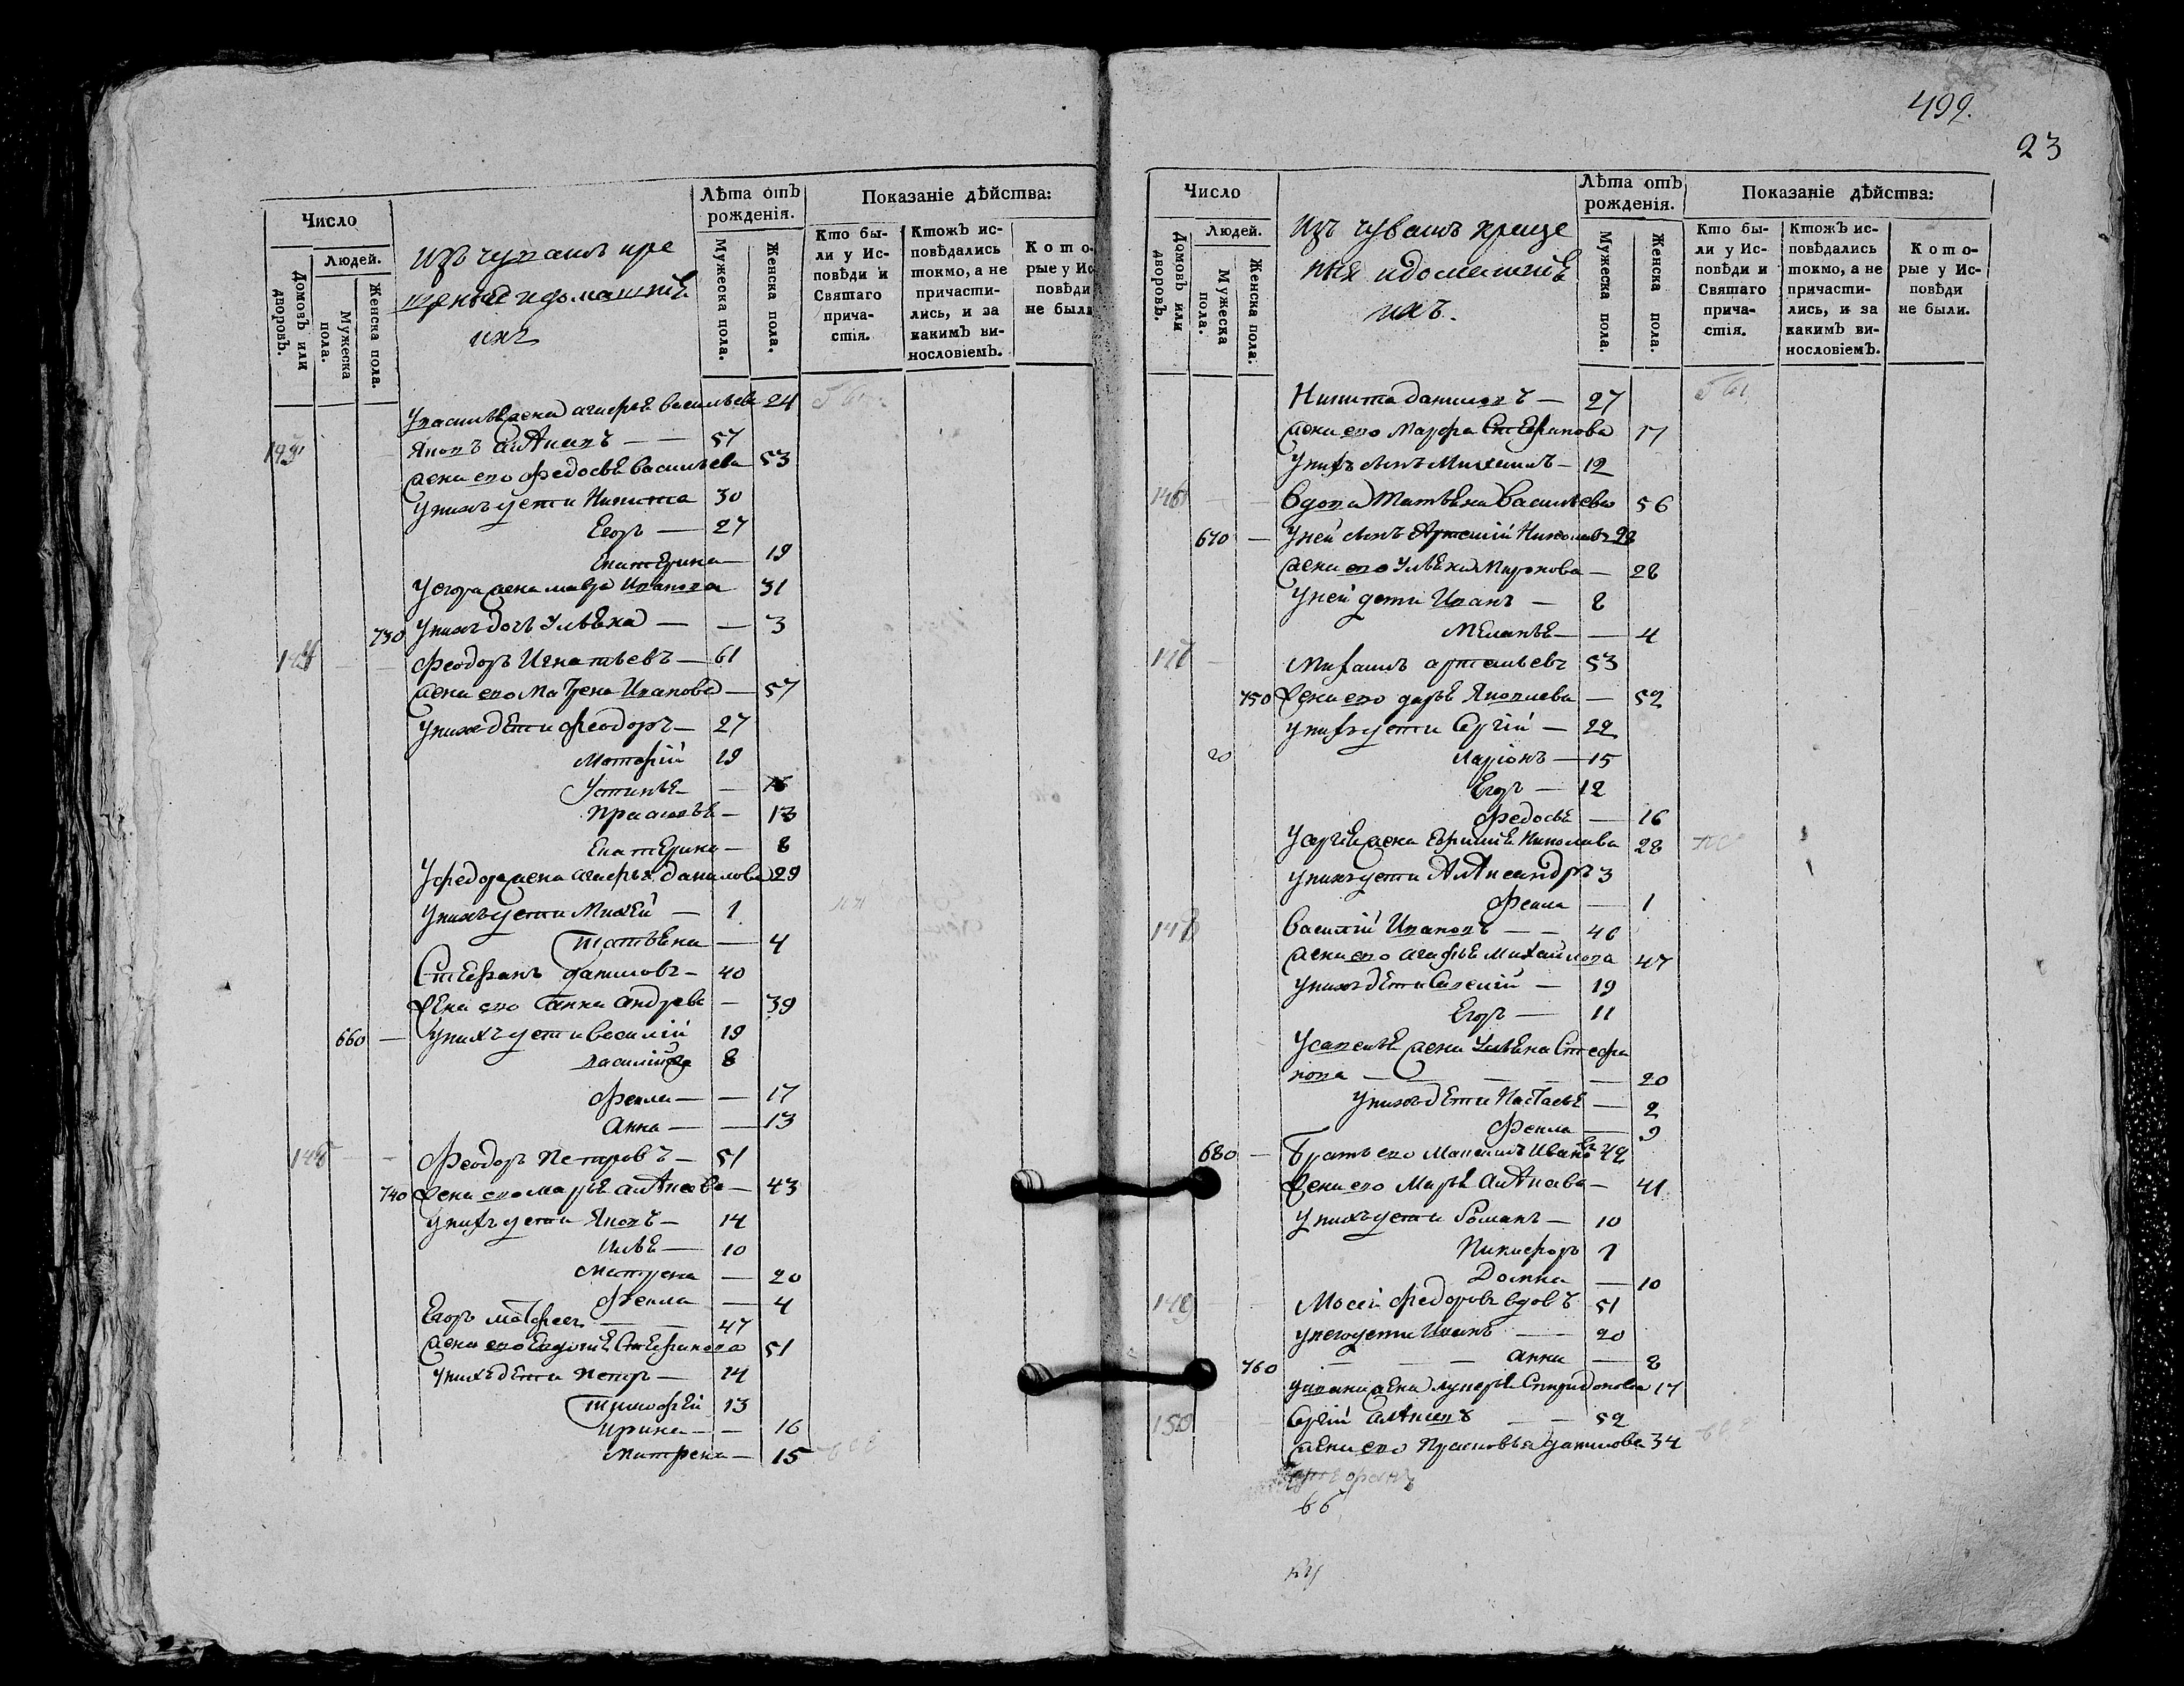 Число
Лѣта отъ рожденія.
Показаніе дѣйства:
Людей.
Домовъ или дворовъ.
Мужеска пола.
Женска пола.
Изъ чувашъ кре
щеные и домашніе
ихъ
Мужеска пола.
Женска пола.
Кто были у Исповѣди и Святаго причастія.
Ктожъ исповѣдались токмо, а не причастились, и за какимъ винословіемъ.
Которые у Исповѣди не были
У василья жена агафья васильева 24
Яковъ алѮиевъ — 57
жена его Федосья васильева 53
У нихъ дети Никита 30
Егоръ — 27
Екатерина — 19
У егора жена мавра Иванова 31
730 У нихъ дочь Ульяна — — 3
Феодоръ Игнатьевъ — 61
жена его Матрена Иванова — 57
У нихъ дети Феодоръ — 27
19
Устинья —
Прасковья — 13
Екатерина — 8
У федора жена агафья данилова 29
У нихъ дети Михей — 1
татьяна — 4
Стефанъ даниловъ — 40
жена его анна андрева — 39
660 — У нихъ дети василій 19
василій же 8
Фекла — — 17
Анна — — 13
Феодоръ Петровъ — 51
740 жена его марья алѮеева — 43
У нихъ дети Яковъ — 14
Илья — 10
матрена — 20
Фекла — 4
Егоръ матфеевъ — 47
жена его Евдокія Стефанова 51
У нихъ дети Петръ — 14
тимофей 13
ирина — — 16
матрена — 15
499.
23
Число
Лѣта отъ рожденія.
Показаніе дѣйства:
Людей.
Домовъ или дворовъ.
Мужеска пола.
Женска пола.
Изъ чувашъ креще
ныя и домашніе
ихъ.
Мужеска пола.
Женска пола.
Кто были у Исповѣди и Святаго причастія.
Ктожъ исповѣдались токмо, а не причастились, и за какимъ винословіемъ.
Которые у Исповѣди не были.
Никита даниловъ — 27
жена его Марфа Стефанова 17
У нихъ сынъ Михаилъ — 12
вдова Татьяна васильева 56
670 — У ней сынъ Николаевъ
жена его Ульяна Миронова — 28
У ней дети Иванъ — 8
Меланья — — 4
Михаилъ артемьевъ 53
750 жена его дарья Яковлева — 52
У нихъ дети Сергій — 22
Ларіонъ — 15
Егоръ — 12
Федосья — 16
У сергея жена Николаева 28
У нихъ дети АлѮсандръ 3
Фекла — 1
147
василій Ивановъ — — 46
жена его агафья михайлова 47
У нихъ дети 19
Егоръ — 11
жена Ульяна Стефа
нова — — — — 20
У нихъ дети Настасья — 2
Фекла — 9
680 — Братъ его Максимъ Ивановъ 42
жена его Марья АлѮеева — 41
У нихъ дети Романъ — 10
Никифоръ 7
Домна — 10
149
Мосей федоровъ вдовъ 51
У него дети Иванъ — 20
760 — — — анна — 8
У ивана жена Лукерья Спиридонова 17
150
Сергій АлѮиевъ — — 52
жена его Прасковья данилова 34